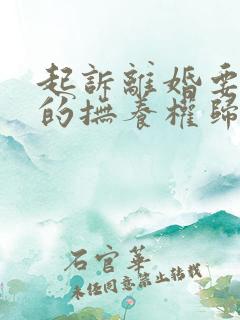 起訴離婚要
的撫養權歸
石官華
未经同意禁止转载